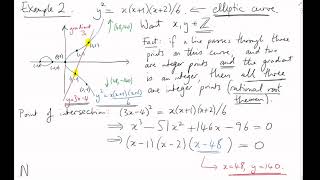 Example 2. y² = x(x+1)(x+2)/6. ← elliptic curve.
gradient
3
Want x, y ∈ ℤ
Fact: if a line passes through three
points on this curve, and two
are integer points and the gradient
is an integer, then all three
are integer points (rational root
theorem).
y=3x-4
y² = x(x+1)(x+2)/6
Point of intersection: (3x-4)² = x(x+1)(x+2)/6
⇒ x³ - 51x² + 146x - 96 = 0
⇒ (x-1)(x-2)(x-48) = 0
x=48, y=140.
N